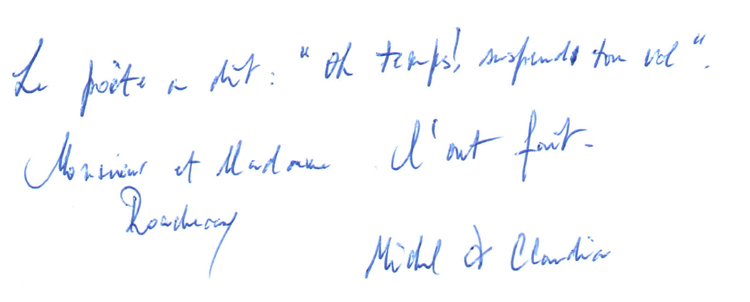 Le poète a dit : "Oh temps!, suspends ton vol".
Monsieur et Madame l'ont fait.
Michel & Claudia